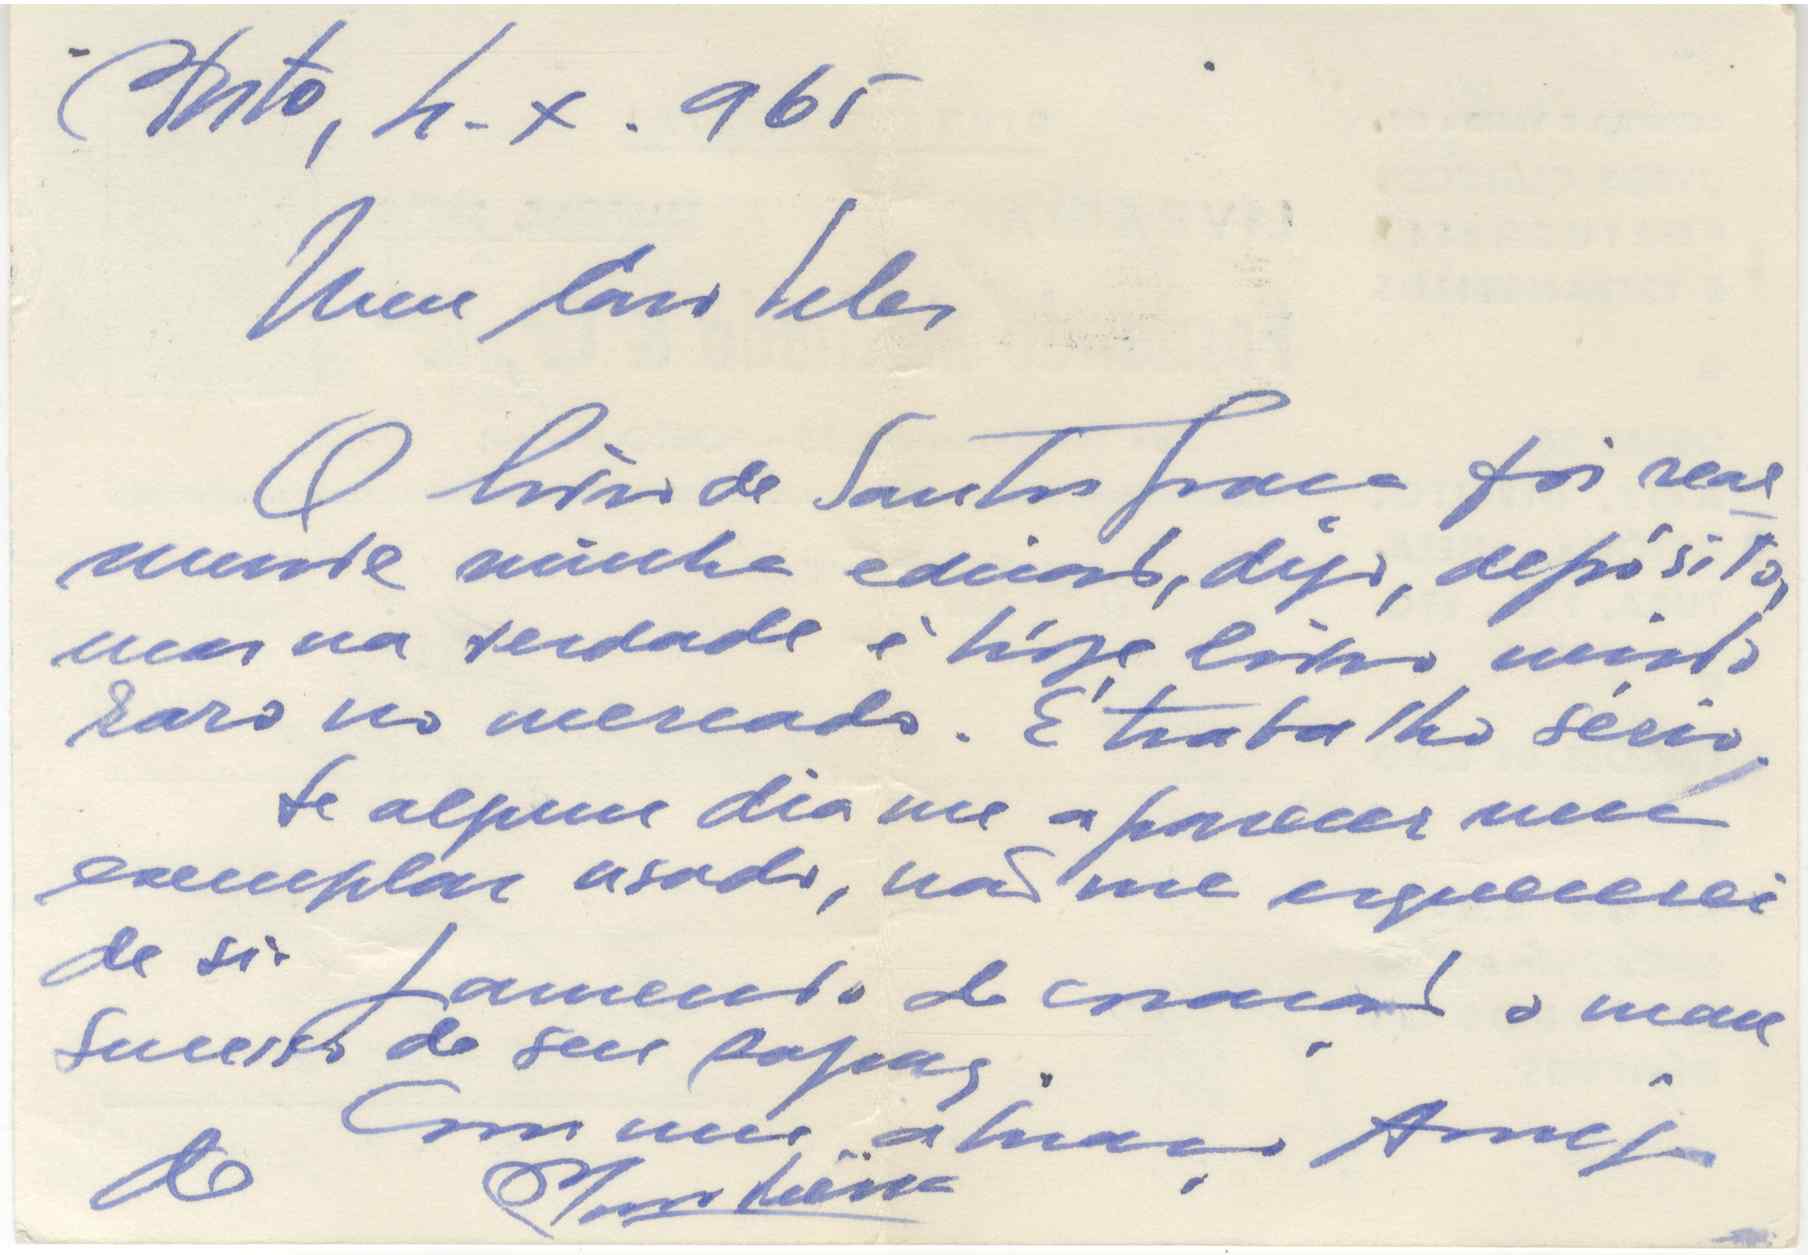 Porto, 4-X-965
Meu Caro Teles
O livro de Santos Graça foi real
mente minha edição, digo, depósito,
mas na verdade é hoje livro muito
raro no mercado. É trabalho sério.
Se algum dia me aparecer um
exemplar usado, não me esquecerei
de si. Lamento de coração o mau
sucesso do seu rapaz.
Com um abraço Amigo
do